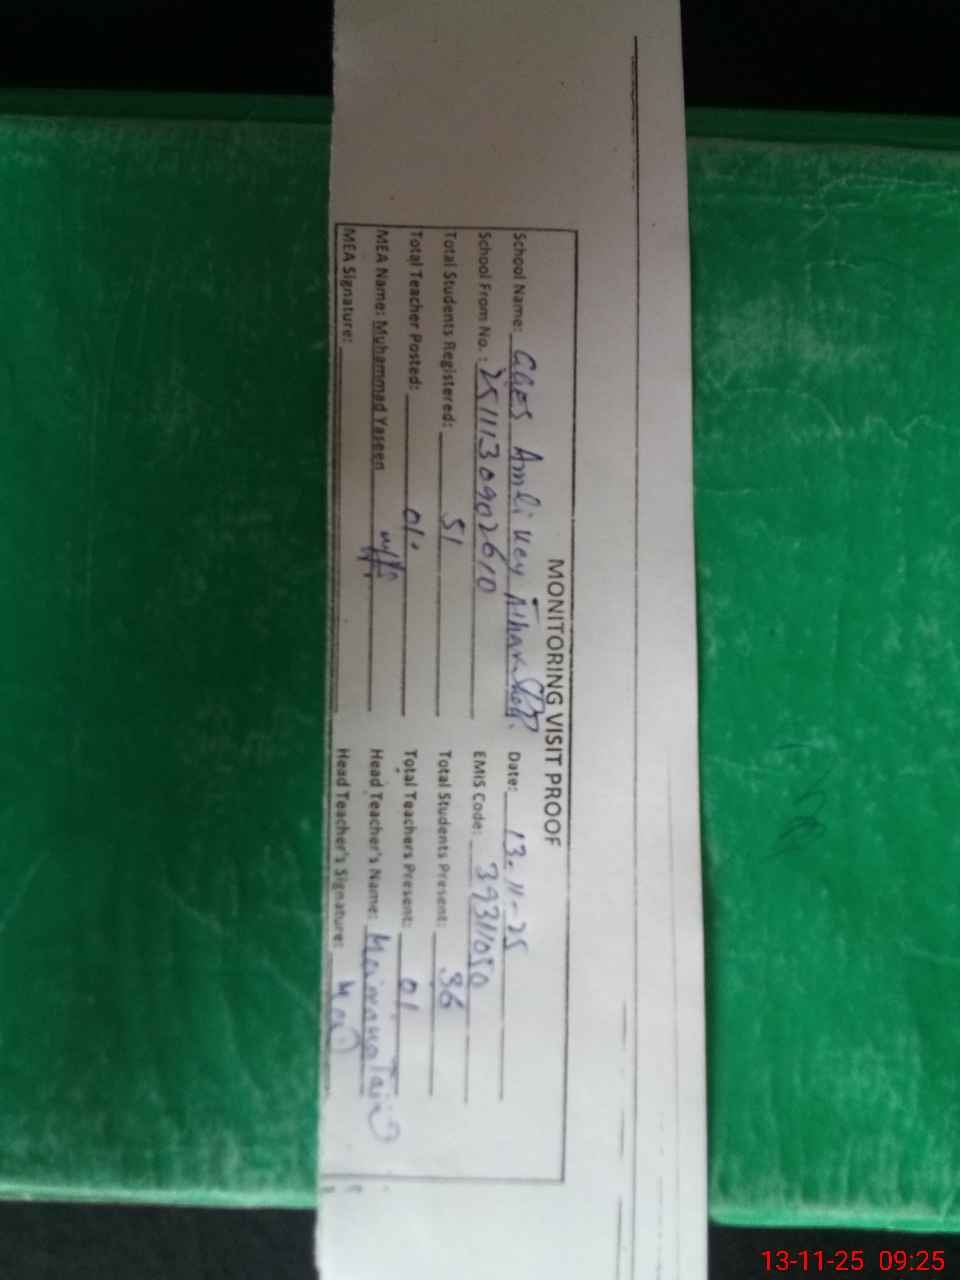 MONITORING VISIT PROOF
School Name: GGES Amli Key Date: 13-11-25
School From No.: 2511130902610 EMIS Code: 39311050
Total Students Registered: 51 Total Students Present: 36
Total Teacher Posted: 01 Total Teachers Present: 01
MEA Name: Muhammad Yaseen Head Teacher's Name:
MEA Signature: Head Teacher's Signature:
13-11-25 09:25